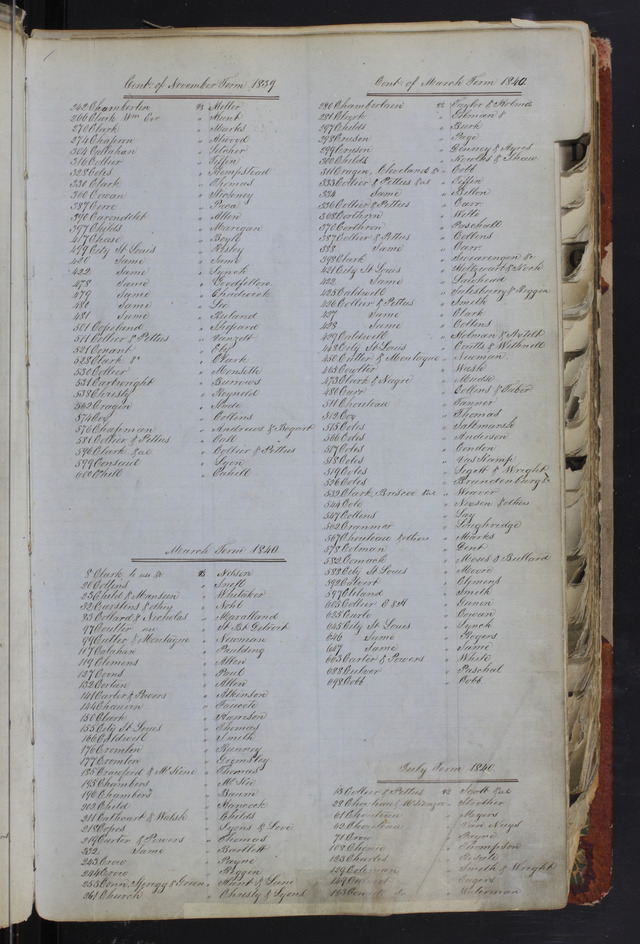 Cont. of November Term 1839
242 Chamberlin vs Miller
266 Clark Wm Exr " Hunt
270 Clark " Marks
274 Chapin " Atwood
304 Callahan " Fletcher
316 Collier " Tiffin
328 Coles " Hempstead
331 Clark " Thomas
360 Cowan "
387 Cerre " Papa
390 Carondelet " Allen
397 Childs " Marigan
417 Chase " Boyle
419 City St Louis " Risley
420 Same " Same
422 Same " Lynch
478 Same " Goodfellow
479 Same " Chadwick
480 Same " Lee
481 Same " Ruland
501 Copeland " Shepard
511 Collier & Pettus "
521 Conant "
528 Clark " Clark
530 Collier " Menselle
531 Cartwright " Burrows
538 Christy " Reynolds
562 Cragin " Slade
574 Coy " Collins
576 Chapman " Andrews & Bogart
581 Collier & Pettus " Coll
596 Clark &al " Collier & Pettus
599 Consaul " Lyon
600 Cahill " Cahill
March Term 1840
8 Clark to use &c vs Nelson
20 Collins " Snell
25 Child & Manson " Whitaker
32 Carstens & " Nohl
33 Collard & Nicholas " Maralland
97 Coulter " St Bt Detroit
99 Cutler & Montague " Newman
117 Calahan " Paulding
119 Clemens " Allen
137 Corns " Paul
132 Cerlien " Allen
141 Carter & Powers " Atkinson
144 Chauvin " Faucette
150 Clark " Harrison
155 City St Louis " Thomas
166 Caldwell " Smith
176 Cromlin " Runney
177 Cromlin " Grimsley
185 Crawford & McKime " Thomas
195 Chambers " McKee
196 Chambers " Baum
203 Child " Haycock
211 Cathcart & Walsh " Childs
218 Copes " Lyons & Love
219 Carter & Powers " Thomas
222 Same " Bartlett
243 Crow " Payne
244 Crow " Biggin
255 Conn, Spragg & Green " Hunt & Lane
261 Church " Christy & Lyons
Cont. of March Term 1840
280 Chamberlain vs Taylor & Holmes
281 Clark "
297 Childs " Burk
298 Cruson " Page
299 Cruson " Ginney & Ayres
300 Childs " Knowles & Thaw
311 Cragin, Cleveland & " Cobb
333 Collier & Pettus &al " Tiffin
334 Same " Billon
336 Collier & Pettus " Carr
368 Corthron " Wells
370 Corthron " Paschall
387 Collier & Pettus " Collins
388 Same " Carr
398 Clark " Swearengen &c
421 City St Louis "
422 Same "
425 Caldwell " Salesbury & Biggin
426 Collier & Pettus " Smith
427 Same " Clark
428 Same " Collins
429 Caldwell " Holman &
448 City St Louis " Coutts & Withnell
450 Cutler & Montague " Newman
463 Coulter " Wash
473 Clark & Nagre " Mudse
486 Carr " Collins & Taber
511 Chouteau " Tanner
512 Coy " Thomas
515 Coles " Saltmarsh
516 Coles " Anderson
517 Coles " Condon
518 Coles "
519 Coles " Ligett & Wright
526 Coles " Brandenburg &c
539 Clark, Briscoe &al " Weaver
544 Cole " Newson & others
547 Collins " Lay
562 Cranmer " Loughridge
567 Chouteau & others " Marks
578 Colman " Gent
582 Comack " Moses & Bullard
588 City St Louis " Moore
592 Calvert " Clemens
597 Cleland " Smith
605 Collier C & H " Gunon
625 Curle " Cowan
645 City St Louis " Lynch
646 Same " Rogers
647 Same " Same
663 Carter & Powers " White
688 Culver " Paschal
698 Cobb " Cobb
July Term 1840
13 Collier & Pettus vs Scott &al
28 Chouteau & " Strother
61 Chouteau " Mayers
62 Chouteau " Van Nays
70 Crow " Payne
108 Chenie " Thompson
123 Charles "
139 Coleman " Smith & Wright
149 " Rogers
163 " Waterman